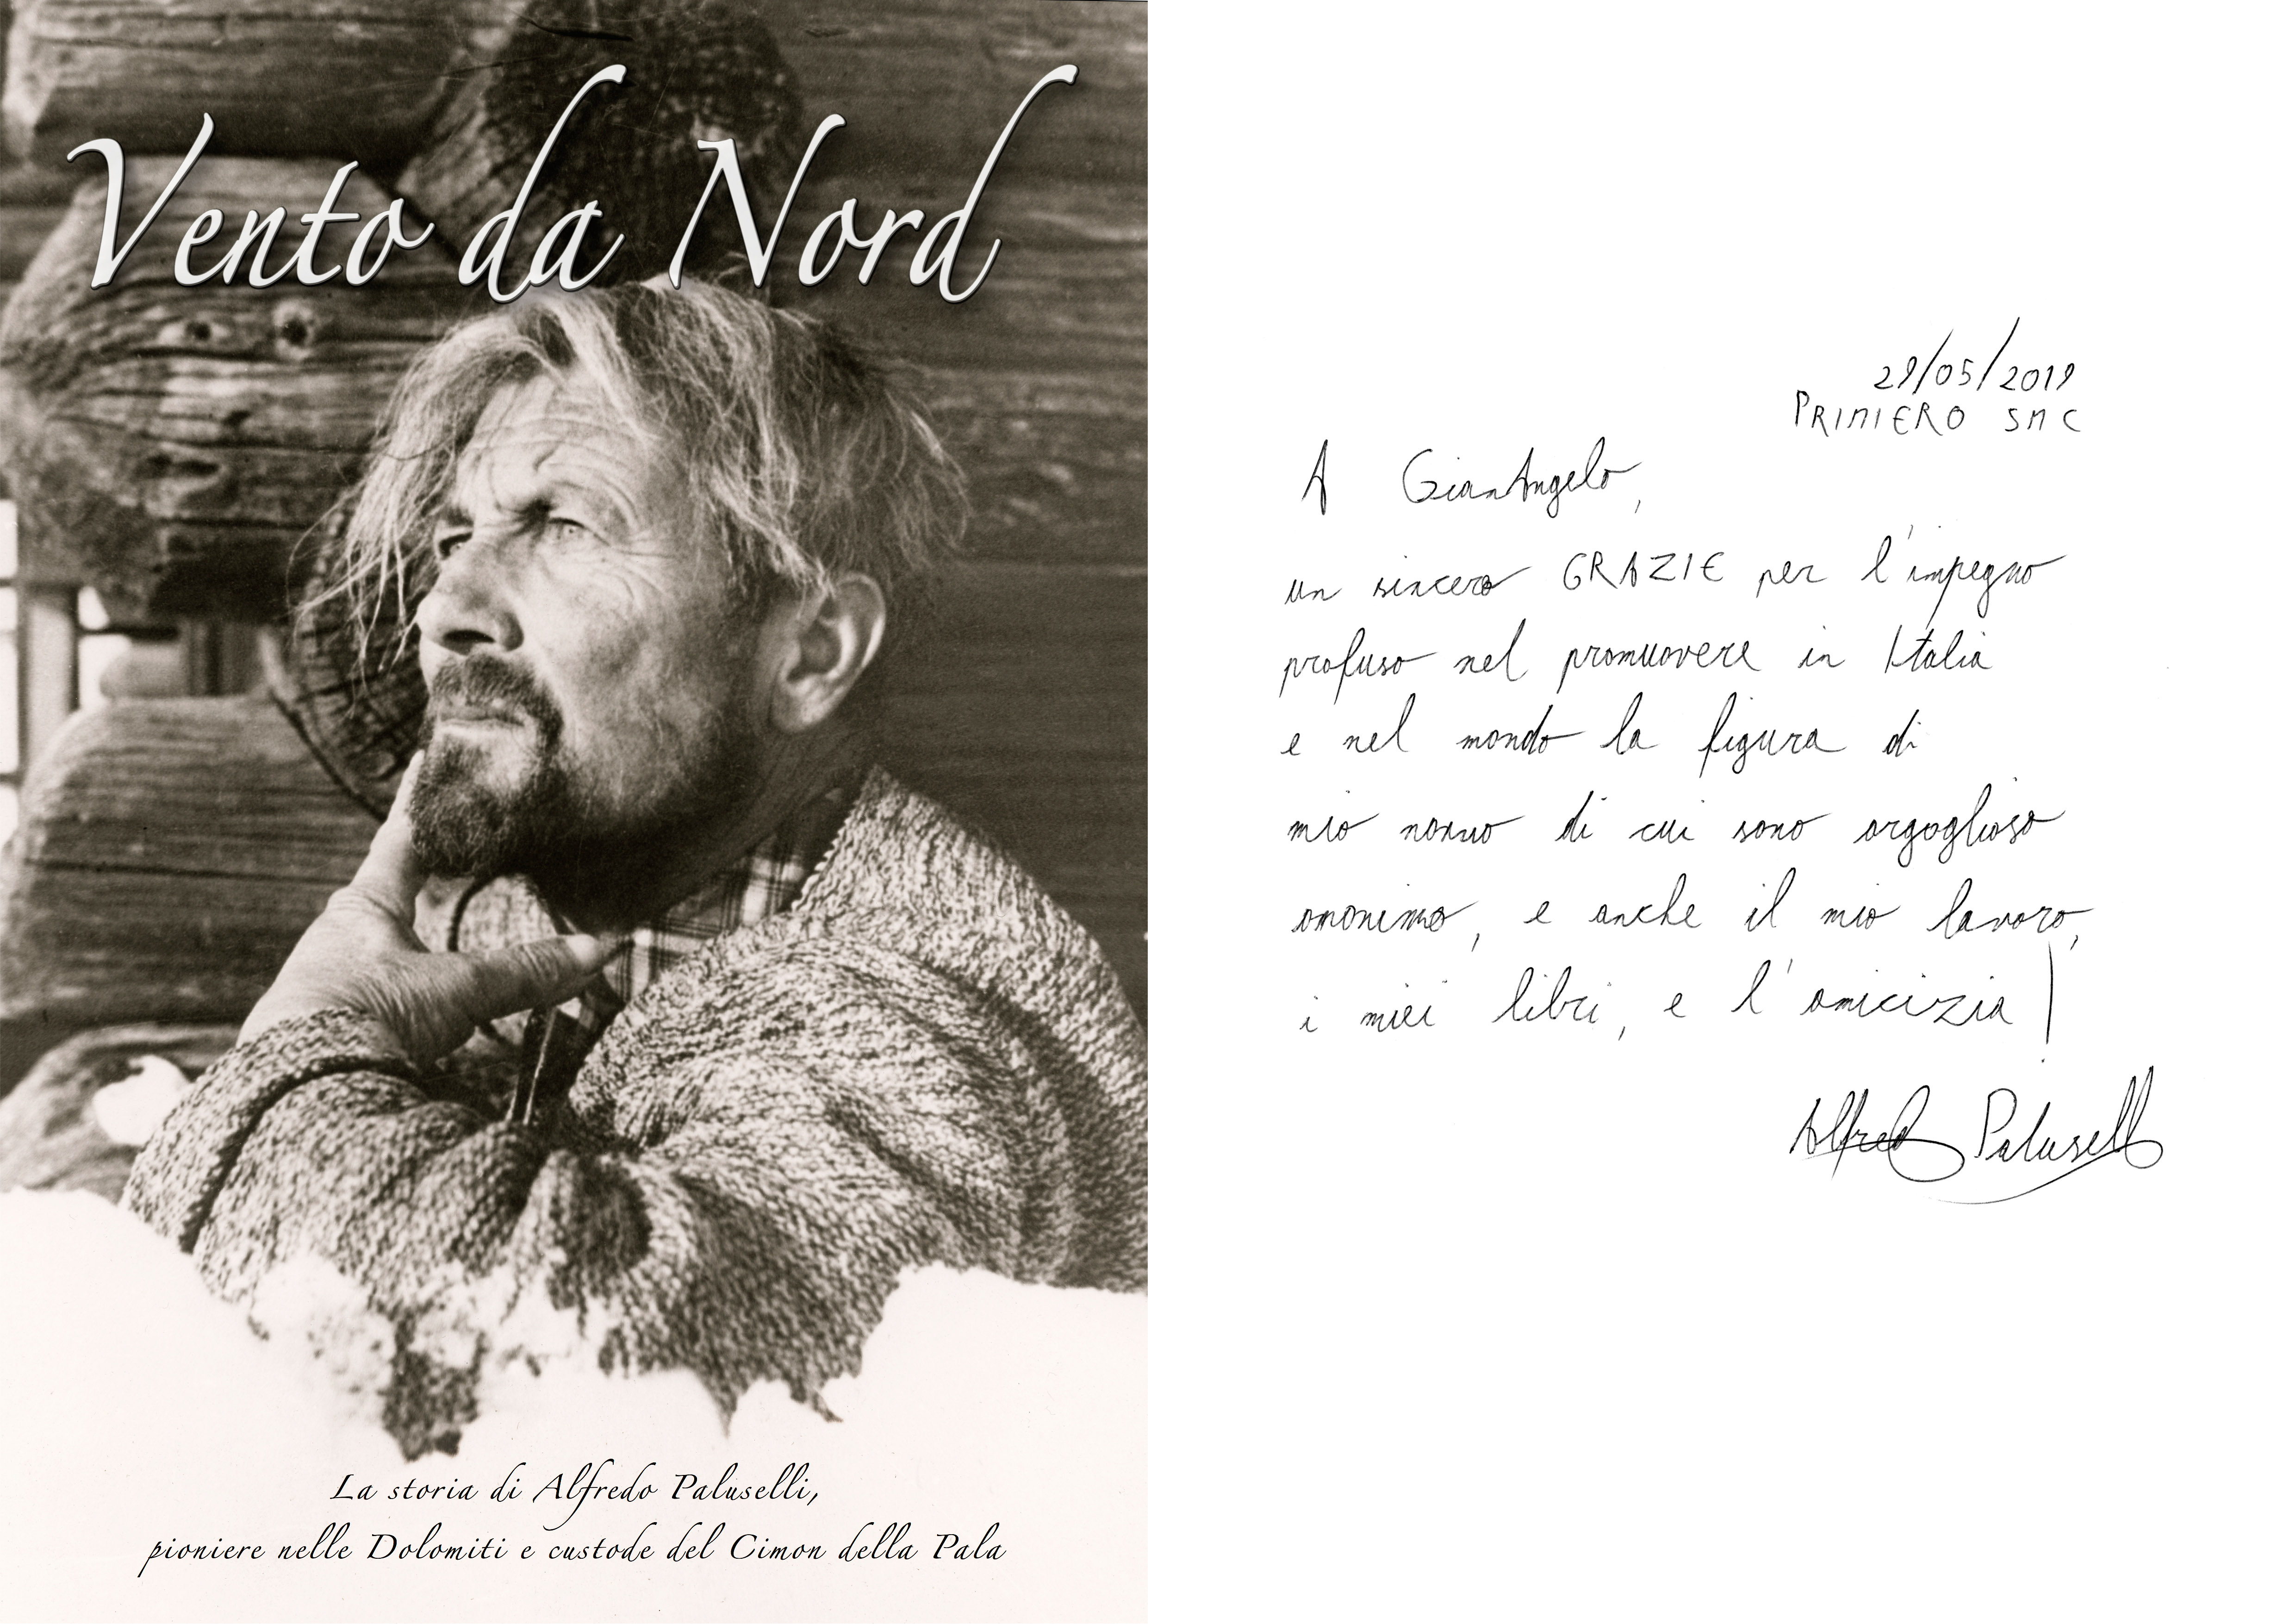 Vento da Nord
La storia di Alfredo Paluselli,
pioniere nelle Dolomiti e custode del Cimon della Pala
29/05/2019
PRIMIERO SMC
A GianAngelo,
un sincero GRAZIE per l'impegno
profuso nel promuovere in Italia
e nel mondo la figura di
mio nonno di cui sono orgoglioso
omonimo, e anche il mio lavoro,
i miei libri, e l'amicizia!
Alfredo Paluselli